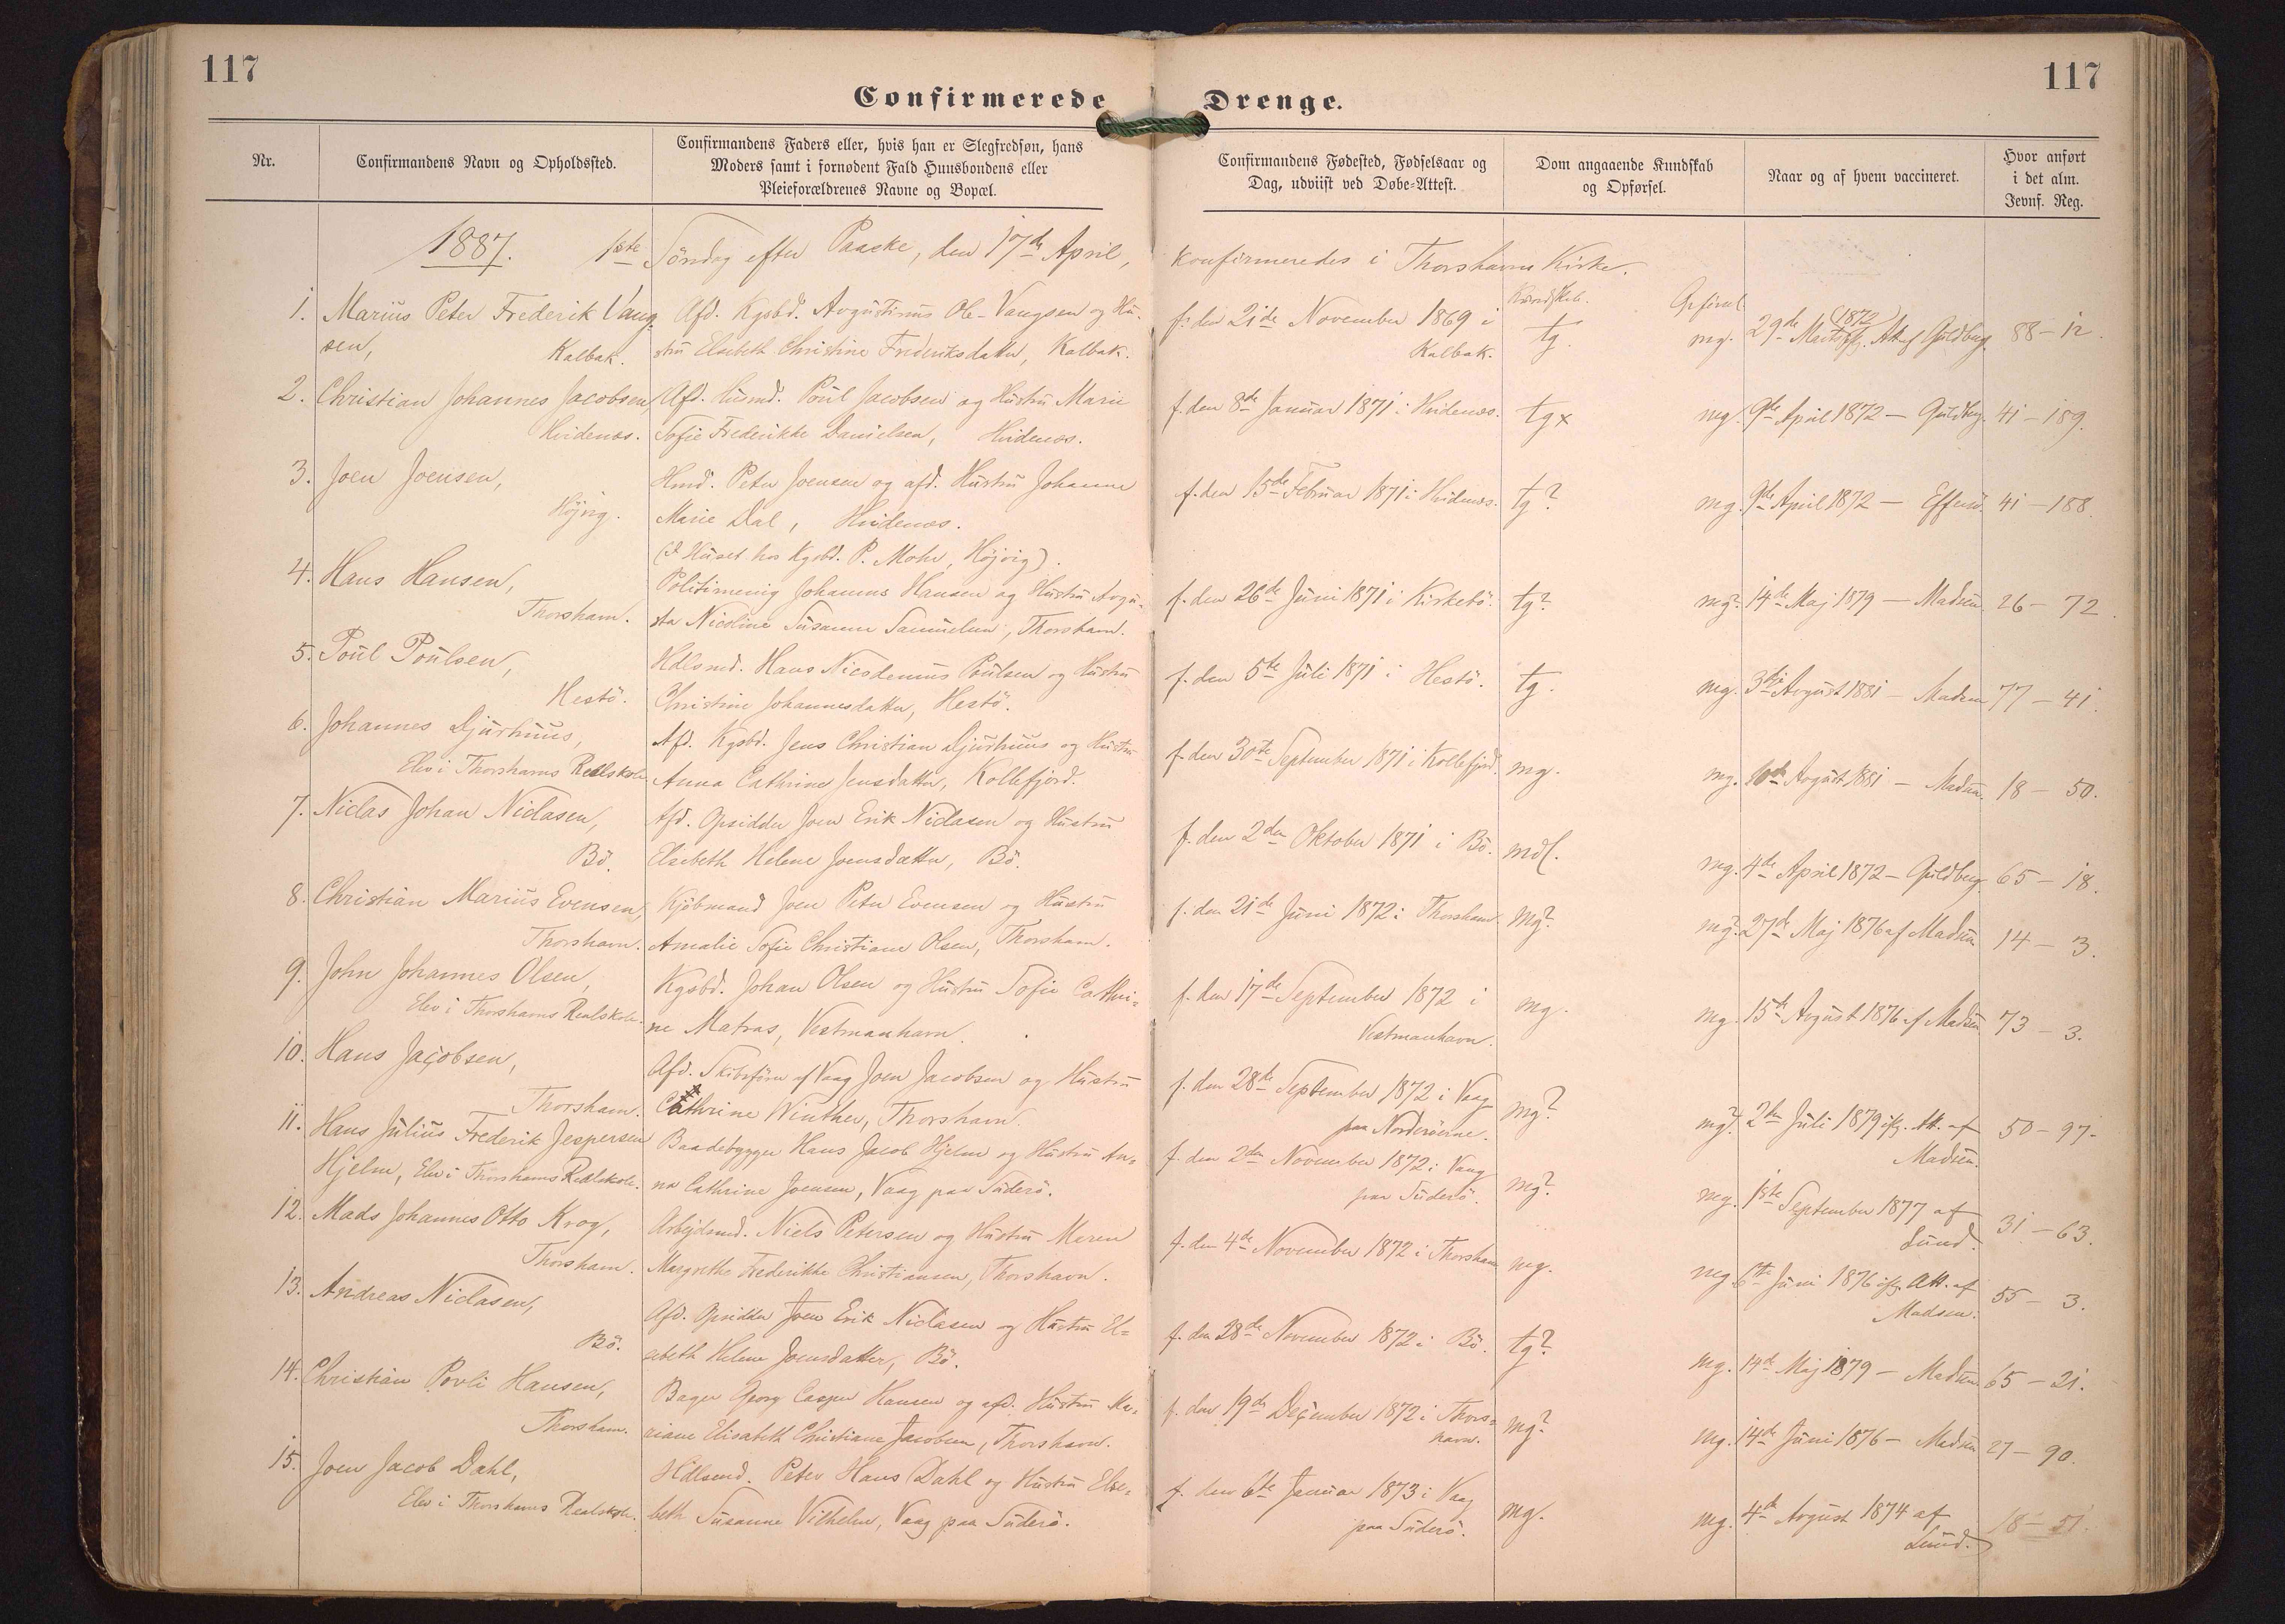 117
117
Confirmerede Drenge.
Nr.
Confirmandens Navn og Opholdssted.
Confirmandens Faders eller, hvis han er Slegfredsøn, hans
Moders samt i fornødent Fald Huusbondens eller
Pleieforældrenes Navne og Bopæl.
Confirmandens Fødested, Fødselsaar og
Dag, udviist ved Døbe-Attest.
Dom angaaende Kundskab
og Opførsel.
Naar og af hvem vaccineret.
Hvor anført
i det alm.
Jevnf. Reg.
1887. 1ste Söndag efter Paaske, den 17de April, konfirmeredes i Thorshavns Kirke.
Kundskab. Opførsel
1. Marius Peter Frederik Vang- Afd. Kgsbd. Avgustinus Ole Vangsen og Hu- f. den 21de November 1869 i tg. mg. 29de Marts (1872) Att. af Guldberg. 88 – 12
sen, Kalbak. stru Elsebeth Christine Frederiksdatter, Kalbak. Kalbak.
2. Christian Johannes Jacobsen, Afd. Husmd. Poul Jacobsen og Hustru Marie f. den 8de Januar 1871 i Hvidenæs. tgx mg. 9de April 1872 — Guldberg. 41 – 189.
Hvidenæs. Sofie Frederikke Danielsen, Hvidenæs.
3. Joen Joensen, Hmd. Peter Joensen og afd. Hustru Johanne f. den 15de Februar 1871 i Hvidenæs. tg? mg. 9de April 1872 — 41 – 188.
Höjvig. Marie Dal, Hvidenæs.
(I Huset hos Kgsbd. P. Mohr, Höjvig).
4. Hans Hansen, Politimenig Johannes Hansen og Hustru Avgu- f. den 26de Juni 1871 i Kirkebö. tg? mg? 14de Maj 1879 — Madsen 26 – 72.
Thorshavn. sta Nicoline Susanne Samuelsen, Thorshavn.
5. Poul Poulsen, Hdlsmd. Hans Nicodemus Poulsen og Hustru f. den 5te Juli 1871 i Hestö. tg. mg. 3die Avgust 1881 — Madsen 77 – 41.
Hestö. Christine Johannesdatter, Hestö.
6. Johannes Djurhuus, Afd. Kgsbd. Jens Christian Djurhuus og Hustru f. den 30te September 1871 i Kollefjord. mg. mg. 10de Avgust 1881 — Madsen. 18 – 50.
Elev i Thorshavns Realskole. Anna Cathrine Jensdatter, Kollefjord.
7. Niclas Johan Niclasen, Afd. Opsidder Joen Erik Niclasen og Hustru f. den 2den Oktober 1871 i Bö. mdl. mg. 4de April 1872 — Guldberg 65 – 18.
Bö. Elsebeth Helene Joensdatter, Bö.
8. Christian Marius Evensen, Kjöbmand Joen Peter Evensen og Hustru f. den 21de Juni 1872 i Thorshavn mg? mg? 27de Maj 1876 af Madsen. 14 – 3.
Thorshavn. Amalie Sofie Christiane Olsen, Thorshavn.
9. John Johannes Olsen, Kgsbd. Johan Olsen og Hustru Sofie Cathri- f. den 17de September 1872 i mg. mg. 15de Avgust 1876 af Madsen 73 – 3.
Elev i Thorshavns Realskole. ne Matras, Vestmanhavn. Vestmanhavn.
10. Hans Jacobsen, Afd. Skibsförer af Vaag Joen Jacobsen og Hustru f. den 28de September 1872 i Vaag mg? mg? 2den Juli 1879 ifg. Att. af 50 – 97.
Thorshavn. Cathrine Winther, Thorshavn. paa Norderöerne. Madsen.
11. Hans Julius Frederik Jespersen Baadebygger Hans Jacob Hjelm og Hustru An- f. den 2den November 1872 i Vaag mg? mg. 1ste September 1877 af 31 – 63.
Hjelm, Elev i Thorshavns Realskole. na Cathrine Joensen, Vaag paa Suderö. paa Suderö. Lund.
12. Mads Johannes Otto Krog, Arbejdsmd. Niels Petersen og Hustru Maren f. den 4de November 1872 i Thorshavn mg. mg. 6te Juni 1876 ifg. Att. af 55 – 3.
Thorshavn. Margrethe Frederikke Christiansen, Thorshavn. Madsen.
13. Andreas Niclasen, Afd. Opsidder Joen Erik Niclasen og Hustru El- f. den 28de November 1872 i Bö. tg? mg. 14de Maj 1879 — Madsen 65 – 21.
Bö. sebeth Helene Joensdatter, Bö.
14. Christian Povli Hansen, Bager Georg Casper Hansen og afd. Hustru Ma- f. den 19de December 1872 i Thors- mg? mg. 14de Juni 1876 — Madsen 27 – 90.
Thorshavn. riane Elisabeth Christiane Jacobsen, Thorshavn. havn.
15. Joen Jacob Dahl, Hdlsmd. Peter Hans Dahl og Hustru Else- f. den 6te Januar 1873 i Vaag mg. mg. 4de Avgust 1874 af 18 – 51.
Elev i Thorshavns Realskole. beth Susanne Vilhelm, Vaag paa Suderö. paa Suderö. Lund.